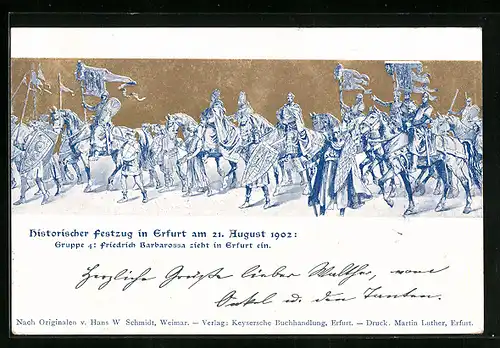 Historischer Festzug in Erfurt am 21. August 1902:
Gruppe 4: Friedrich Barbarossa zieht in Erfurt ein.
Herzliche Grüße lieber Walther, vom
Onkel u. den Tanten.
Nach Originalen v. Hans W Schmidt, Weimar. — Verlag: Keysersche Buchhandlung, Erfurt. — Druck. Martin Luther, Erfurt.